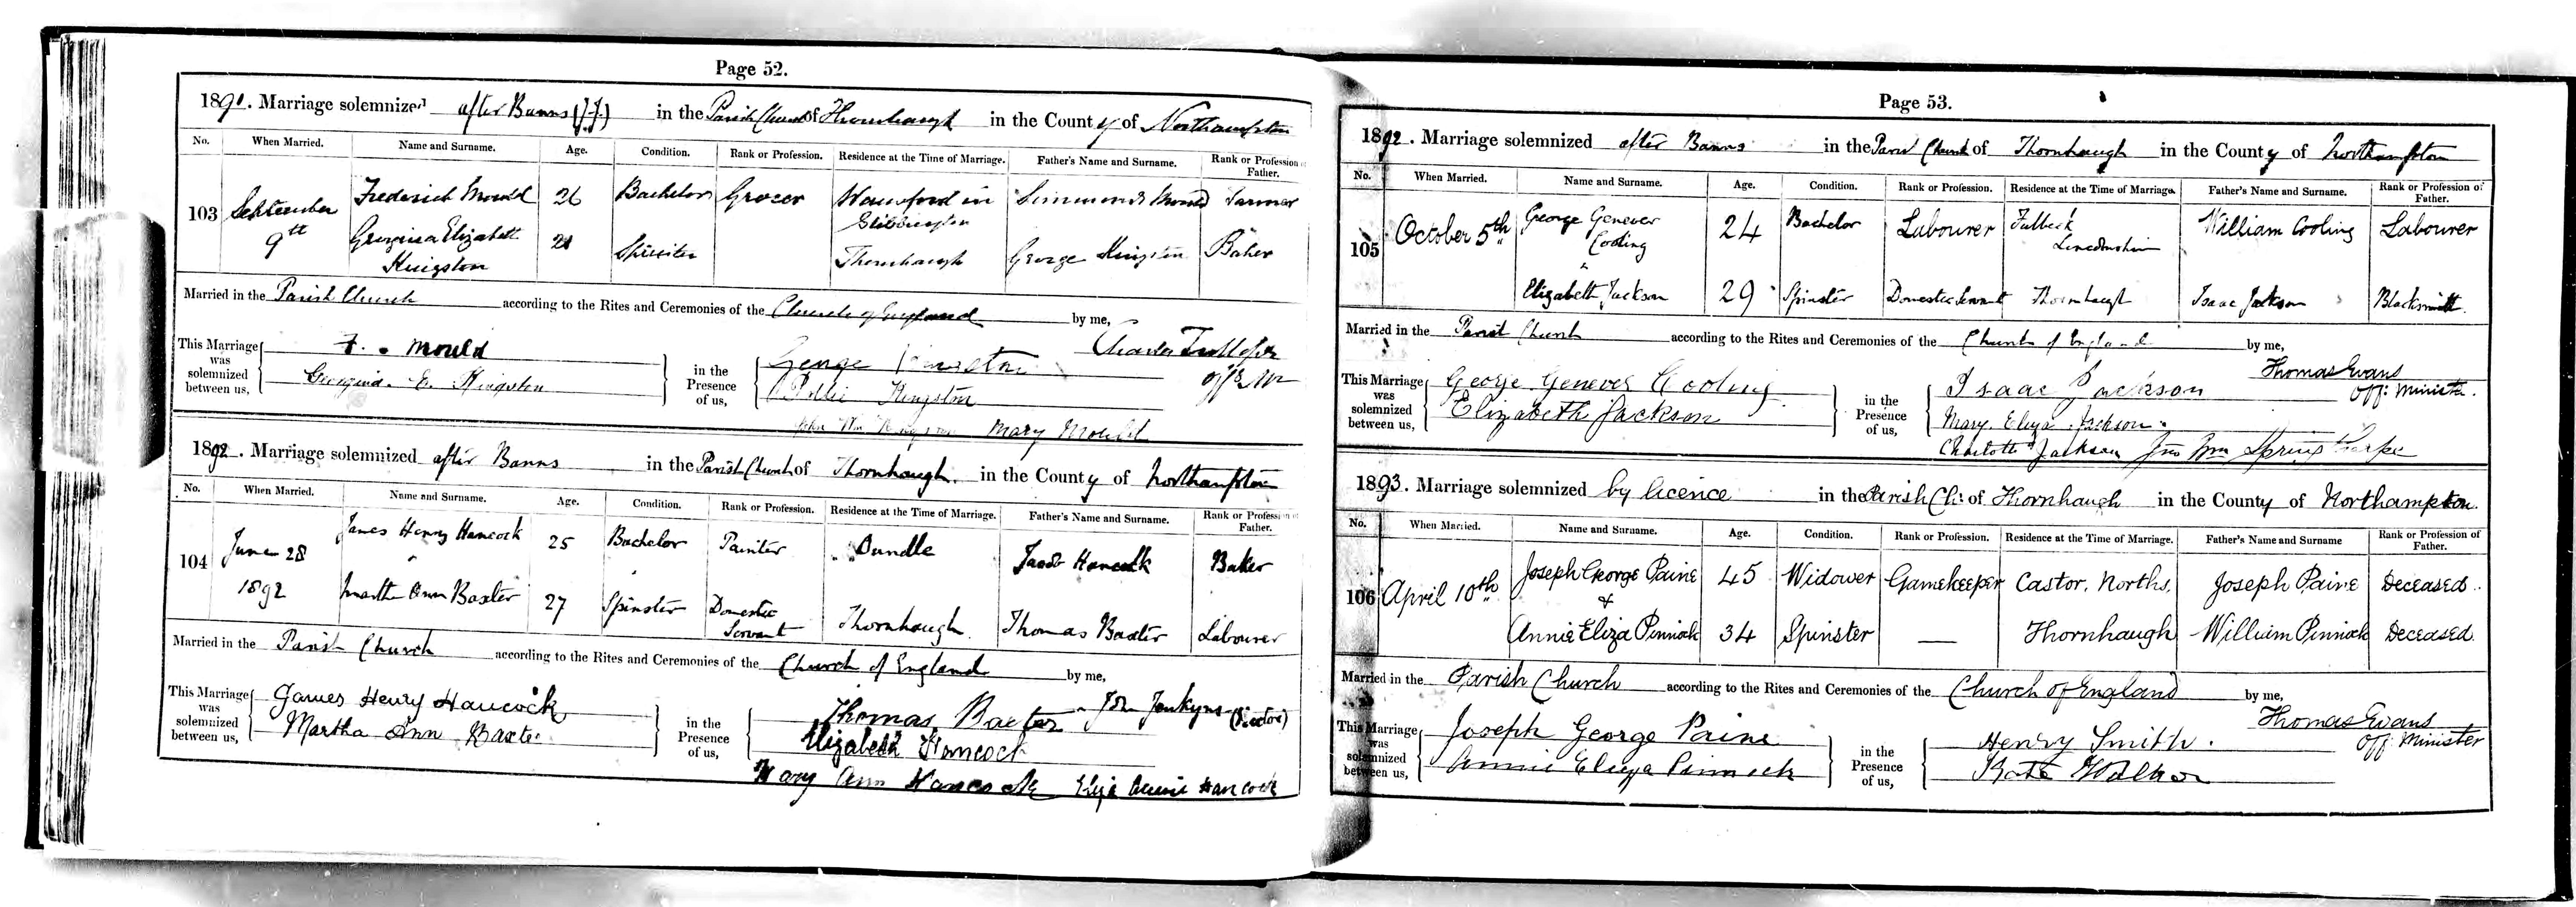 Page 52.
1891. Marriage solemnized after Banns in the Parish Church of Thornhaugh in the County of Northampton
No. When Married. Name and Surname. Age. Condition. Rank or Profession. Residence at the Time of Marriage. Father's Name and Surname. Rank or Profession of Father.
103 September 9th Frederick Mould 26 Bachelor Grocer Wansford in Stibbington Simmonds Mould Farmer
Georgina Elizabeth Kingston 21 Spinster Thornhaugh George Kingston Baker
Married in the Parish Church according to the Rites and Ceremonies of the Church of England by me,
Charles Trollope
Off. Mr
This Marriage was solemnized between us, F. Mould
Georgina E. Kingston
in the Presence of us, George Kingston
Pollie Kingston
John Wm Kingston Mary Mould
1892. Marriage solemnized after Banns in the Parish Church of Thornhaugh. in the County of Northampton
No. When Married. Name and Surname. Age. Condition. Rank or Profession. Residence at the Time of Marriage. Father's Name and Surname. Rank or Profession of Father.
104 June 28 1892 James Henry Hancock 25 Bachelor Painter Oundle Jacob Hancock Baker
Martha Ann Baxter 27 Spinster Domestic Servant Thornhaugh Thomas Baxter Labourer
Married in the Parish Church according to the Rites and Ceremonies of the Church of England by me,
John Jenkyns (Rector)
This Marriage was solemnized between us, James Henry Hancock
Martha Ann Baxter
in the Presence of us, Thomas Baxter
Elizabeth Hancock
Mary Ann Hancock Eliza Hancock
Page 53.
1892. Marriage solemnized after Banns in the Parish Church of Thornhaugh in the County of Northampton
No. When Married. Name and Surname. Age. Condition. Rank or Profession. Residence at the Time of Marriage. Father's Name and Surname. Rank or Profession of Father.
105 October 5th George Genever Cooling 24 Bachelor Labourer Fulbeck Lincolnshire William Cooling Labourer
Elizabeth Jackson 29 Spinster Domestic Servant Thornhaugh Isaac Jackson Blacksmith.
Married in the Parish Church according to the Rites and Ceremonies of the Church of England by me,
Thomas Evans
Off: Minister.
This Marriage was solemnized between us, George Genever Cooling
Elizabeth Jackson
in the Presence of us, Isaac Jackson
Mary Eliza Jackson.
Charlotte Jackson Jno Wm Spring Thorpe
1893. Marriage solemnized by licence in the Parish Ch: of Thornhaugh in the County of Northampton.
No. When Married. Name and Surname. Age. Condition. Rank or Profession. Residence at the Time of Marriage. Father's Name and Surname Rank or Profession of Father.
106 April 10th Joseph George Paine 45 Widower Gamekeeper Castor, Norths, Joseph Paine Deceased.
&
Annie Eliza Pinnock 34 Spinster — Thornhaugh William Pinnock Deceased.
Married in the Parish Church according to the Rites and Ceremonies of the Church of England by me,
Thomas Evans
Off: Minister
This Marriage was solemnized between us, Joseph George Paine
Annie Eliza Pinnock
in the Presence of us, Henry Smith.
Kate Walker